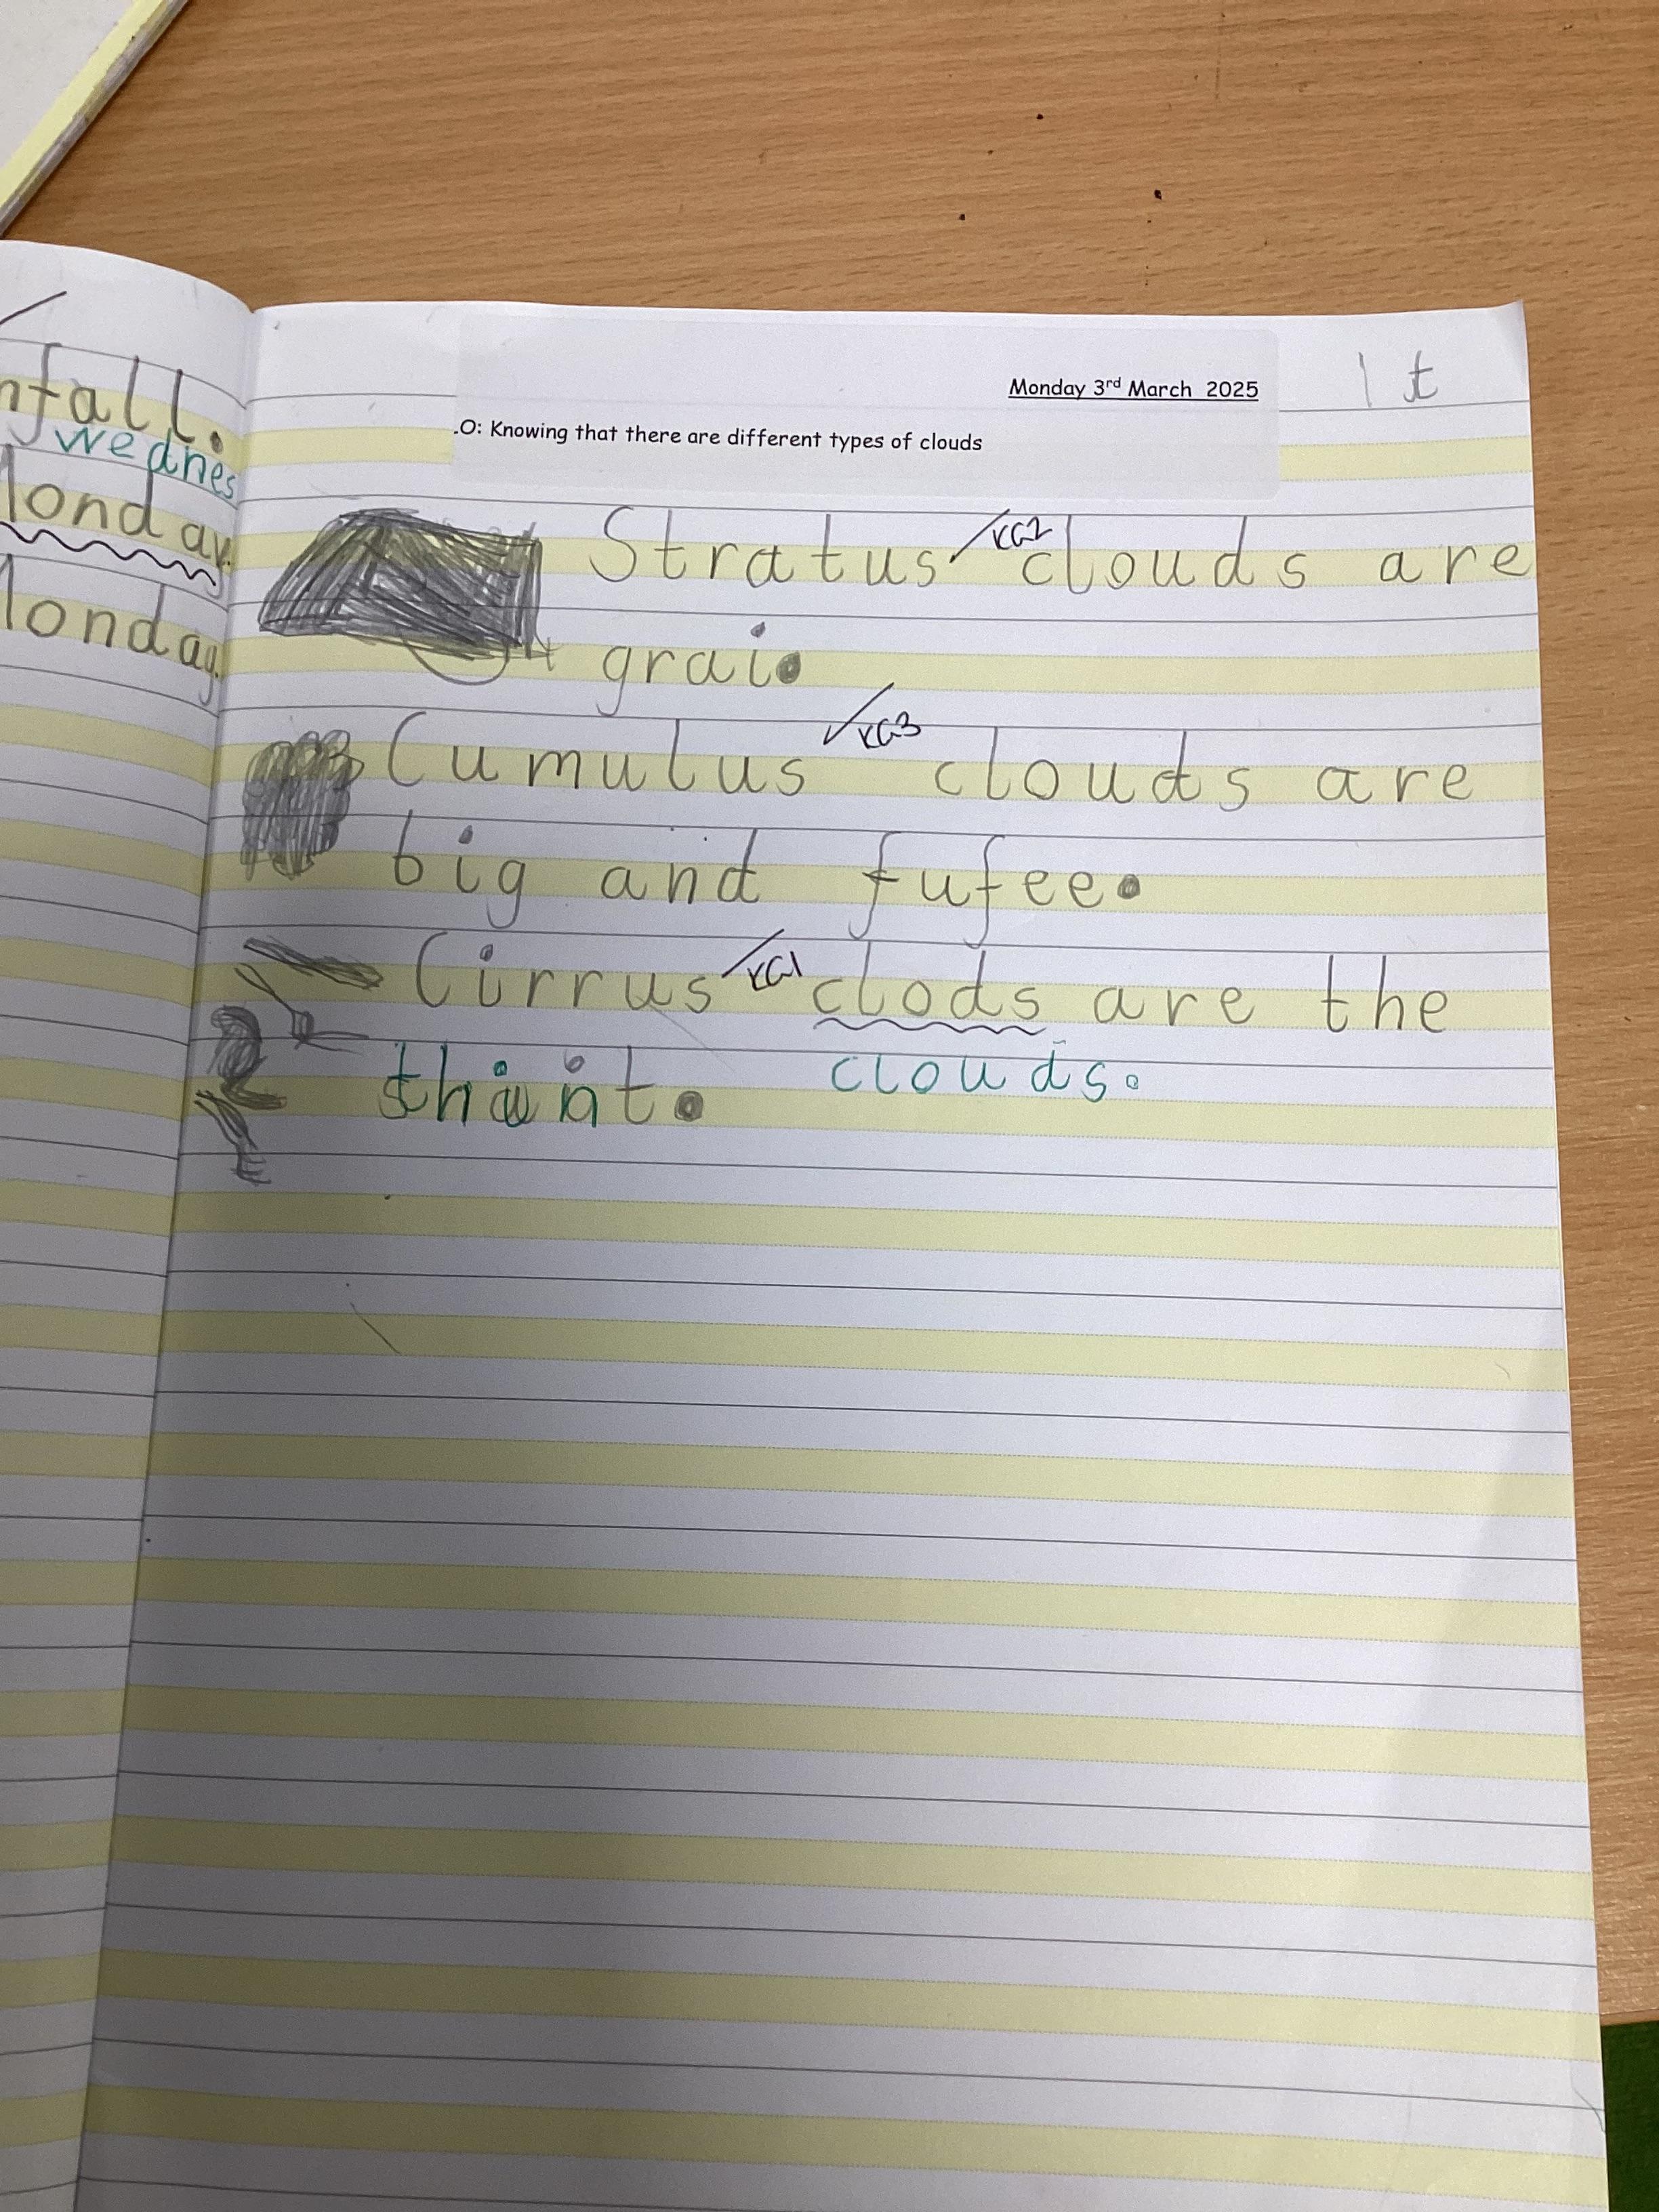 nfall.
wednes
onday.
onday.
Monday 3rd March 2025
1t
.O: Knowing that there are different types of clouds
Stratus KG2 clouds are
grai.
KG3
Cumulus clouds are
big and fufee.
Cirrus KG1 clods are the
clouds.